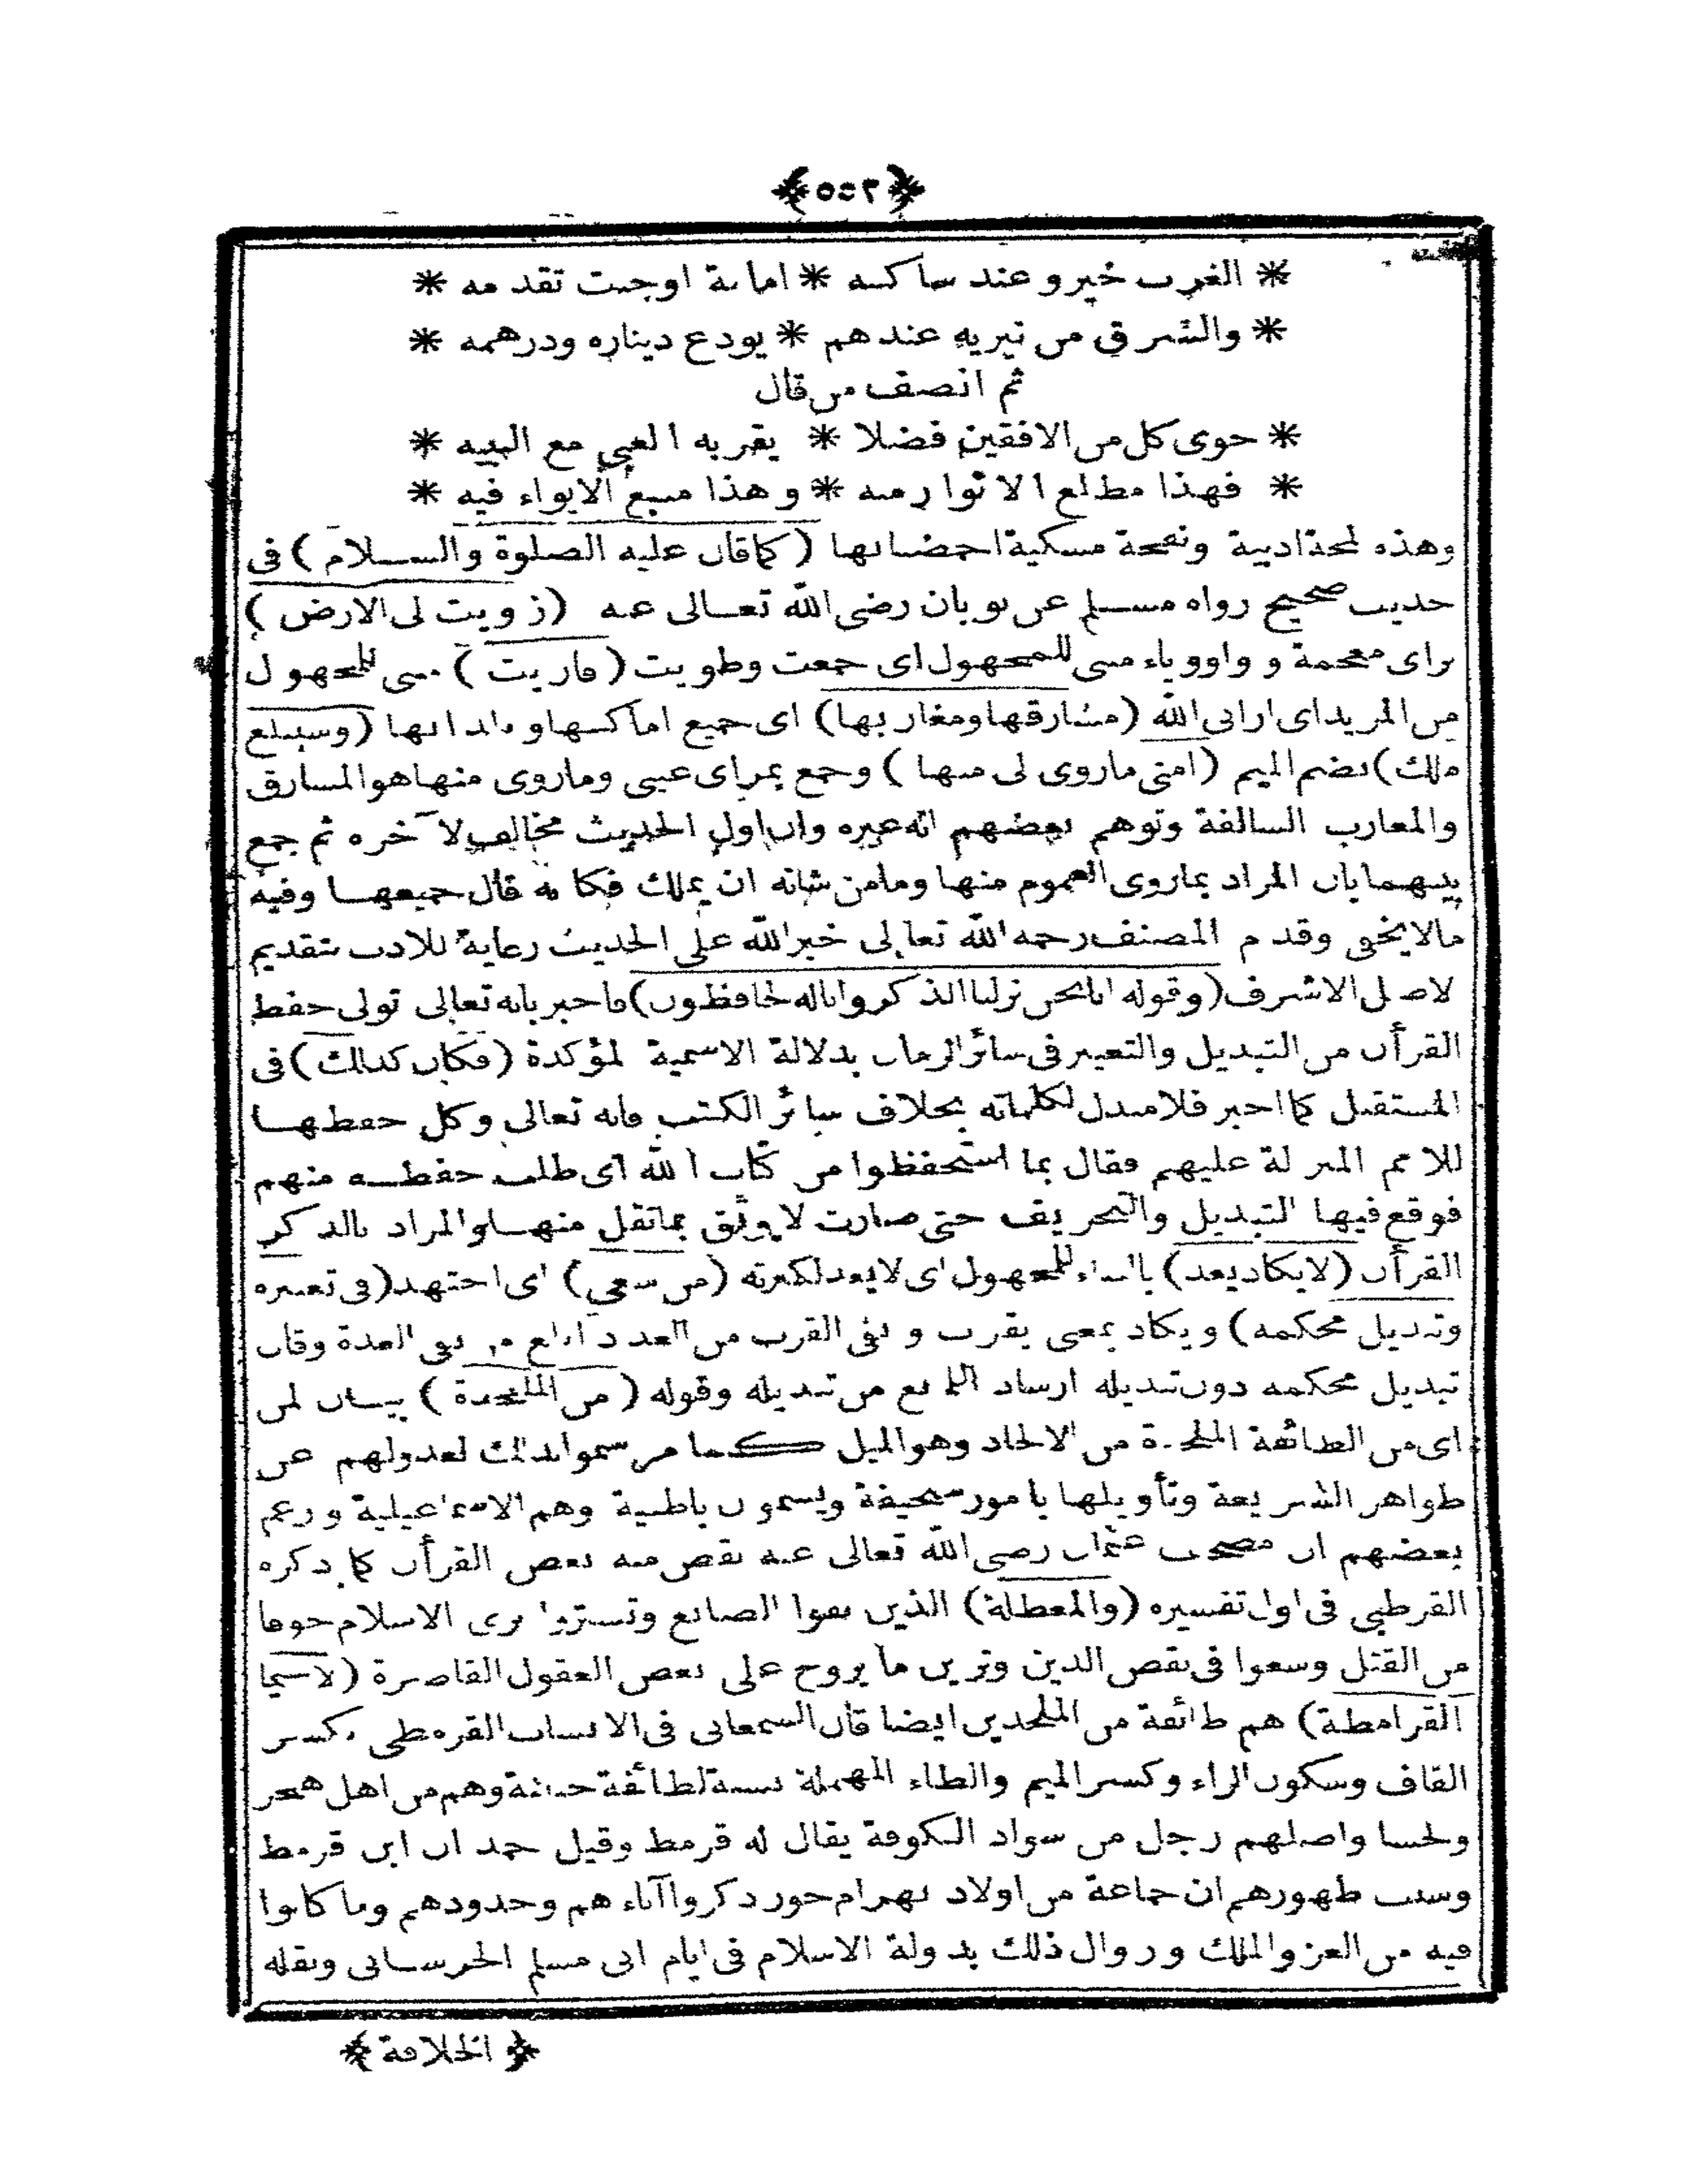 ﴿٥٥٢﴾
* الغرب خير وعند ساكنه * امانة اوجبت تقدمه *
* والشرق من نيريه عندهم * يودع ديناره ودرهمه *
ثم انصف من قال
* حوى كل من الافقين فضلا * يقربه الغبي مع النبيه *
* فهذا مطلع الانوار منه * وهذا منبع الانواء فيه *
وهذه لمحة ادبية ونفحة مسكية احمضنابها (كما قال عليه الصلوة والسلام) فى
حديث صحيح رواه مسلم عن ثوبان رضى الله تعالى عنه (زويت لى الارض)
بزاى معجمة وواو وياء مبنى للمجهول اى جمعت وطويت (فاريت) مبنى للمجهول
من المزيد اى ارانى الله (مشارقها ومغاربها) اى جميع اماكنها وبلدانها (وسيبلغ
ملك) بضم الميم (امتى ما زوى لى منها) وجمع بمرأى عينى وما زوى منها هو المشارق
والمغارب السالفة وتوهم بعضهم انه غيره وان اول الحديث مخالف لآخره ثم جمع
بينهما بان المراد بما زوى العموم منها وما من شانه ان يملك فكانه قال جميعها وفيه
ما لا يخفى وقدم المصنف رحمه الله تعالى خبر الله على الحديث رعاية للادب بتقديم
لاصل الاشرف (وقوله انا نحن نزلنا الذكر وانا له لحافظون) فاخبر بانه تعالى تولى حفظ
القرأن من التبديل والتغيير فى سائر الزمان بدلالة الاسمية لمؤكدة (فكان كذلك) فى
المستقبل كما اخبر فلا مبدل لكلماته بخلاف سائر الكتب فانه تعالى وكل حفظها
للامم المنزلة عليهم فقال بما استحفظوا من كتاب الله اى طلب حفظه منهم
فوقع فيها التبديل والتحريف حتى صارت لا يوثق بما نقل منها والمراد بالذكر
القرأن (لا يكاد يعد) بالبناء للمجهول اى لا يعد لكثرته (من سعى) اى اجتهد (فى تغييره
وتبديل محكمه) ويكاد بمعنى يقرب ونفى القرب من العدد ابلغ من نفى العدة وقال
تبديل محكمه دون تبديله ارشاد المانع من تبديله وقوله (من الملحدة) بيان لمن
اى من الطائفة الملحدة من الالحاد وهو الميل كما مر سموا بذلك لعدولهم عن
ظواهر الشريعة وتأويلها بامور سخيفة ويسمون باطنية وهم الاسماعيلية وزعم
بعضهم ان مصحف عثمان رضى الله تعالى عنه نقص منه بعض القرأن كما ذكره
القرطبى فى اول تفسيره (والمعطلة) الذين نفوا الصانع وتستروا بزى الاسلام خوفا
من القتل وسعوا فى نقص الدين وتزيين ما يروج على بعض العقول القاصرة (لا سيما
القرامطة) هم طائفة من الملحدين ايضا قال السمعانى فى الانساب القرمطى بكسر
القاف وسكون الراء وكسر الميم والطاء المهملة نسبة لطائفة خبيثة وهم من اهل هجر
ولحسا واصلهم رجل من سواد الكوفة يقال له قرمط وقيل حمدان ابن قرمط
وسبب ظهورهم ان جماعة من اولاد بهرام جور ذكروا آباءهم وجدودهم وما كانوا
فيه من العز والملك وزوال ذلك بدولة الاسلام فى ايام ابى مسلم الخرسانى ونقله
﴿الخلافة﴾